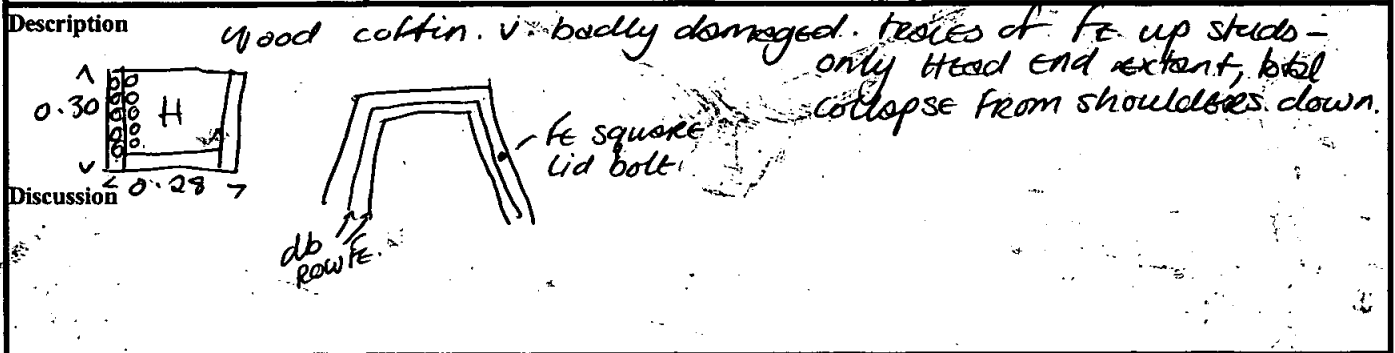 Description
Wood coffin. v. badly damaged. traces of FE up studs -
only Head End extant, total
collapse from shoulders down.
0.30
H
0.28
FE square
lid bolt
Discussion
db
ROW FE.